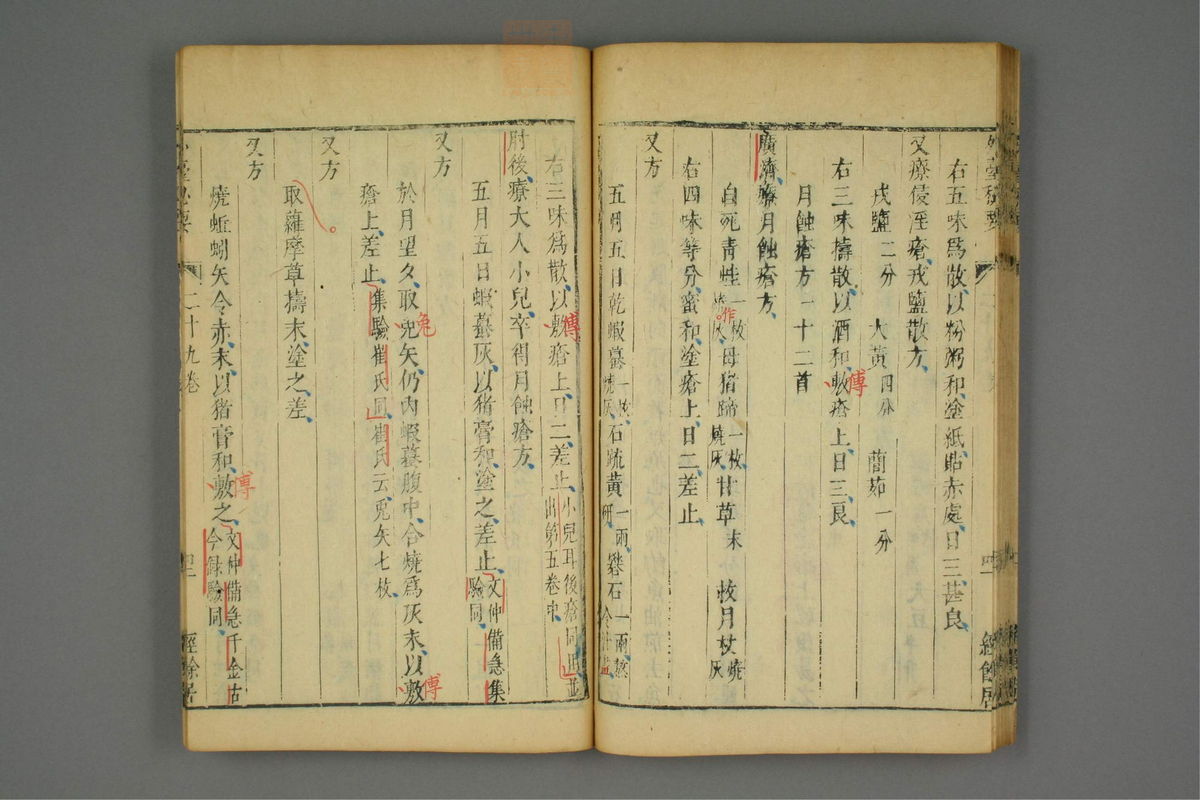 右五味為散以粉粥和塗紙貼赤處日三甚良
又療侵淫瘡戎鹽散方
戎鹽二分 大黃四分 䕡茹一分
右三味擣散以酒和敷瘡上日三良
傅
月蝕瘡方一十二首
廣濟療月蝕瘡方
自死青蛙一枚燒灰 母猪蹄一枚燒灰 甘草末 救月杖燒灰
作
右四味等分蜜和塗瘡上日二差止
又方
五月五日乾蝦蟇一枚燒灰 石硫黃一兩研 礬石一兩熬令汁盡
右三味為散以敷瘡上日二差止小兒耳後瘡同出並出第五卷中
傅
肘後療大人小兒卒得月蝕瘡方
五月五日蝦蟇灰以猪膏和塗之差止文仲備急集驗同
又方
於月望夕取兜矢仍內蝦蟇腹中合燒為灰末以敷
兔
傅
瘡上差止集驗崔氏同崔氏云兎矢七枚
又方
取蘿摩草擣末塗之差
又方
燒蚯蚓矢令赤末以猪膏和敷之文仲備急千金古今録驗同
傅
二十九卷
經餘居